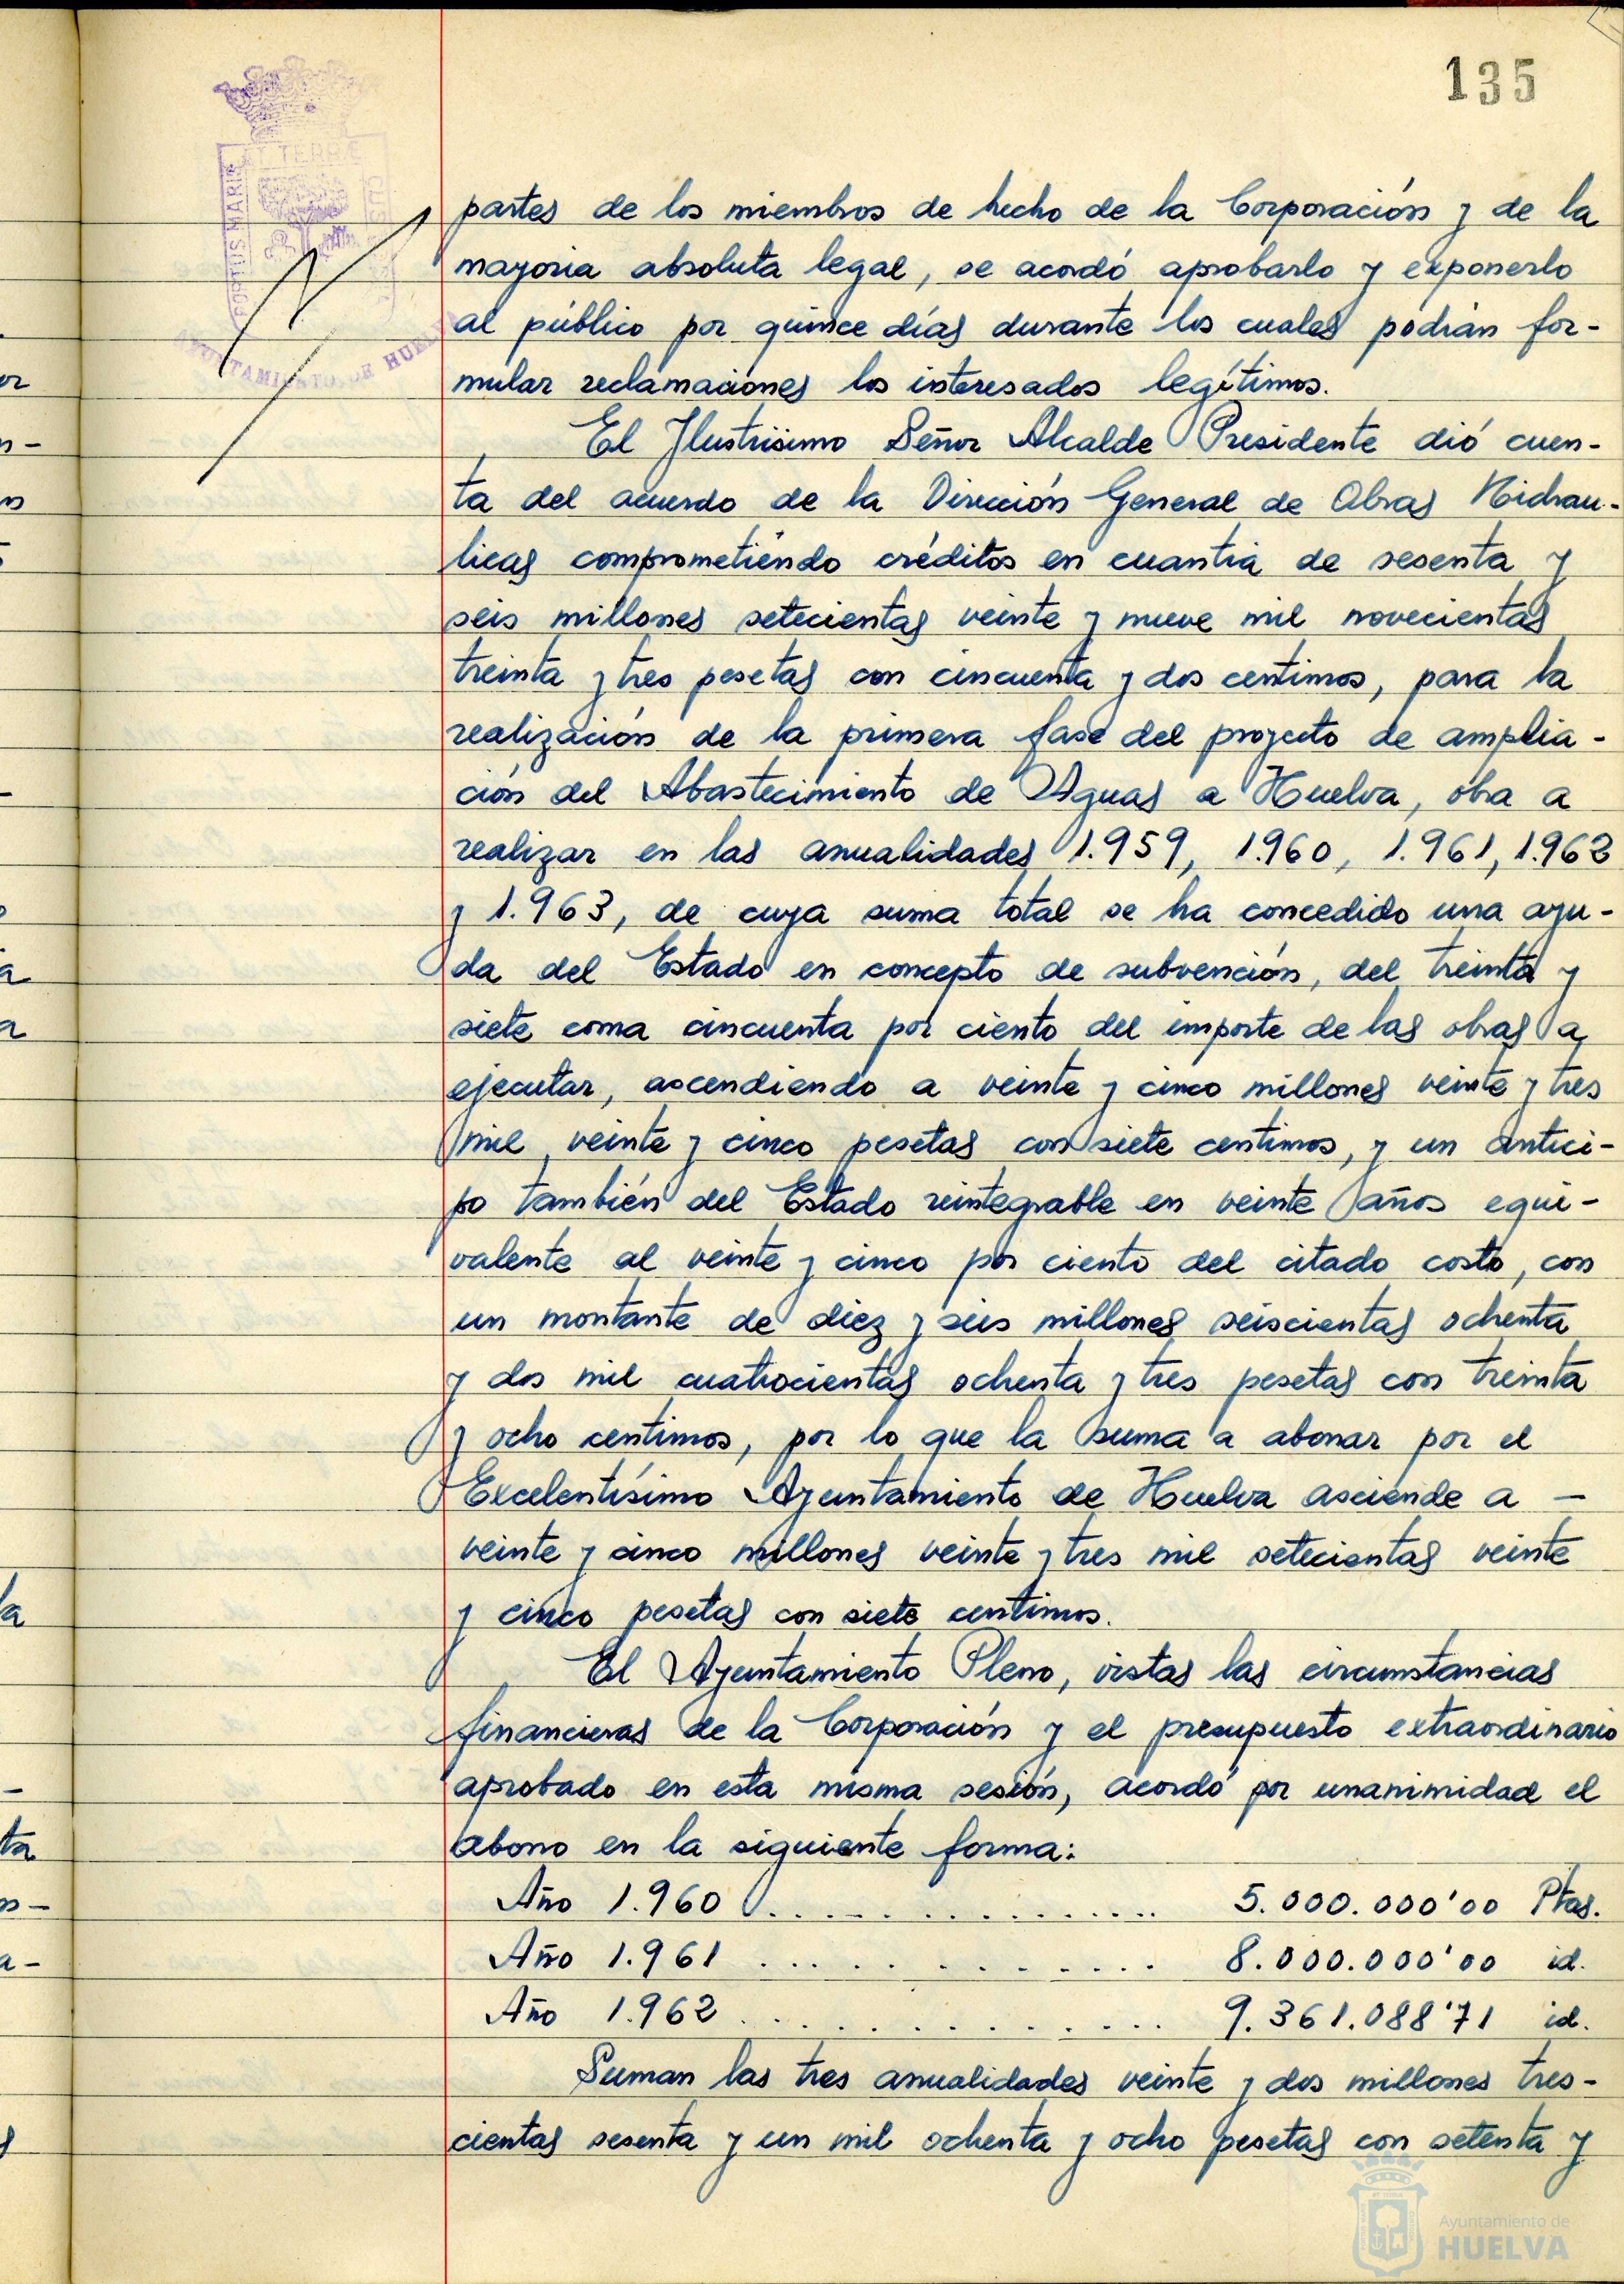 135
PORTUS MARIS ET TERRÆ CUSTODIA
AYUNTAMIENTO DE HUELVA
partes de los miembros de hecho de la Corporación y de la
mayoria absoluta legal, se acordó aprobarlo y exponerlo
al público por quince días durante los cuales podrán for-
mular reclamaciones los interesados legítimos.
El Ilustrísimo Señor Alcalde Presidente dió cuen-
ta del acuerdo de la Dirección General de Obras Hidrau-
licas comprometiéndo créditos en cuantía de sesenta y
seis millones setecientas veinte y nueve mil novecientas
treinta y tres pesetas con cincuenta y dos centimos, para la
realización de la primera fase del proyecto de amplia-
ción del Abastecimiento de Aguas a Huelva, obra a
realizar en las anualidades 1.959, 1.960, 1.961, 1.962
y 1.963, de cuya suma total se ha concedido una ayu-
da del Estado en concepto de subvención, del treinta y
siete coma cincuenta por ciento del importe de las obras a
ejecutar, ascendiendo a veinte y cinco millones veinte y tres
mil, veinte y cinco pesetas con siete centimos, y un antici-
po también del Estado reintegrable en veinte años equi-
valente al veinte y cinco por ciento del citado costo, con
un montante de diez y seis millones seiscientas ochenta
y dos mil cuatrocientas ochenta y tres pesetas con treinta
y ocho centimos, por lo que la suma a abonar por el
Excelentísimo Ayuntamiento de Huelva asciende a —
veinte y cinco millones veinte y tres mil setecientas veinte
y cinco pesetas con siete centimos.
El Ayuntamiento Pleno, vistas las circumstancias
financieras de la Corporación y el presupuesto extraordinario
aprobado en esta misma sesión, acordó por unanimidad el
abono en la siguiente forma:
Año 1.960 ................ 5.000.000'00 Ptas.
Año 1.961 ................ 8.000.000'00 id.
Año 1.962 ................ 9.361.088'71 id.
Suman las tres anualidades veinte y dos millones tres-
cientas sesenta y un mil ochenta y ocho pesetas con setenta y
Ayuntamiento de
HUELVA